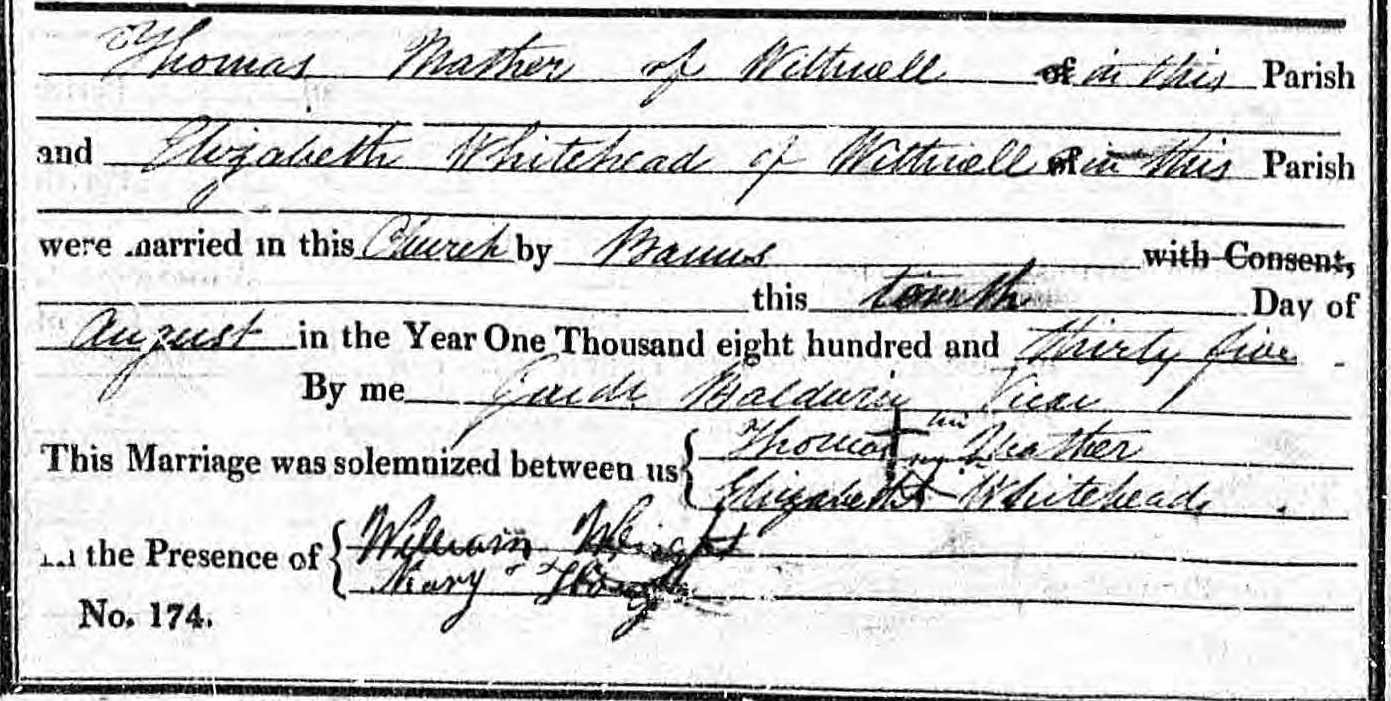 Thomas Mather of Withnell of in this Parish
and Elizabeth Whitehead of Withnell of in this Parish
were married in this Church by Banns with Consent,
this tenth Day of
August in the Year One Thousand eight hundred and thirty five
By me Baldwin Vicar
This Marriage was solemnized between us { Thomas + Mather
Elizabeth + Whitehead
In the Presence of { William Wright
Mary
No. 174.